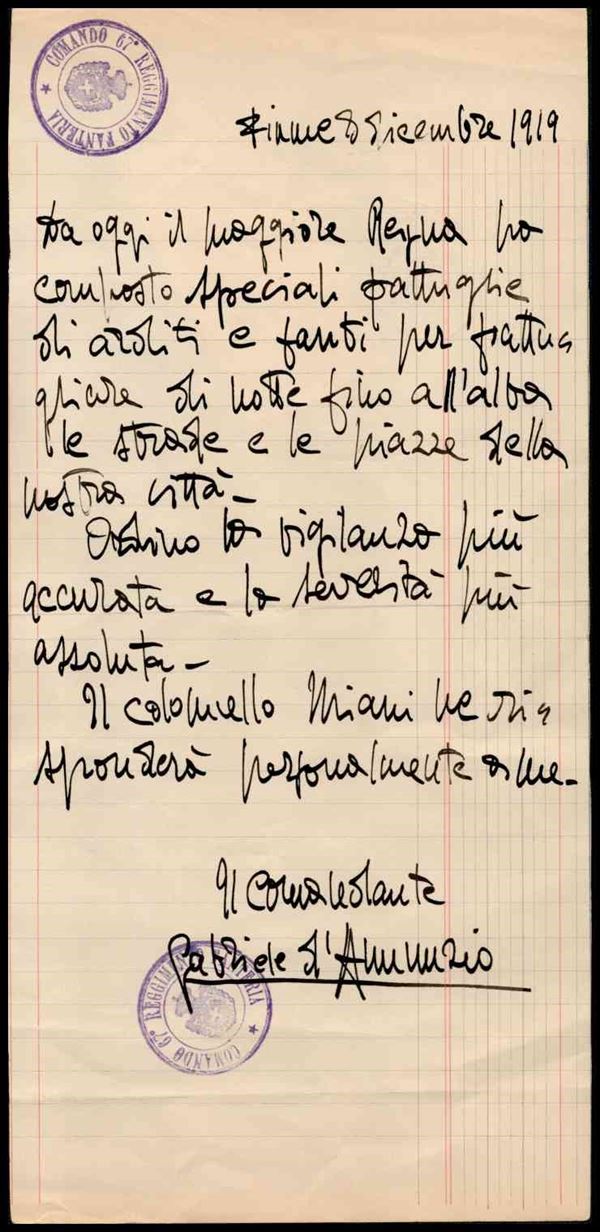 COMANDO 67° REGGIMENTO FANTERIA
Fiume 8 dicembre 1919
Da oggi il maggiore Reyna ha
composto speciali pattuglie
di arditi e fanti per pattu-
gliare di notte fino all'alba
le strade e le piazze della
nostra città_
Ordino la vigilanza più
accurata e la severità più
assoluta_
Il colonnello Miani ne ri-
sponderà personalmente a me_
Il comandante
Gabriele d'Annunzio
COMANDO 67° REGGIMENTO FANTERIA